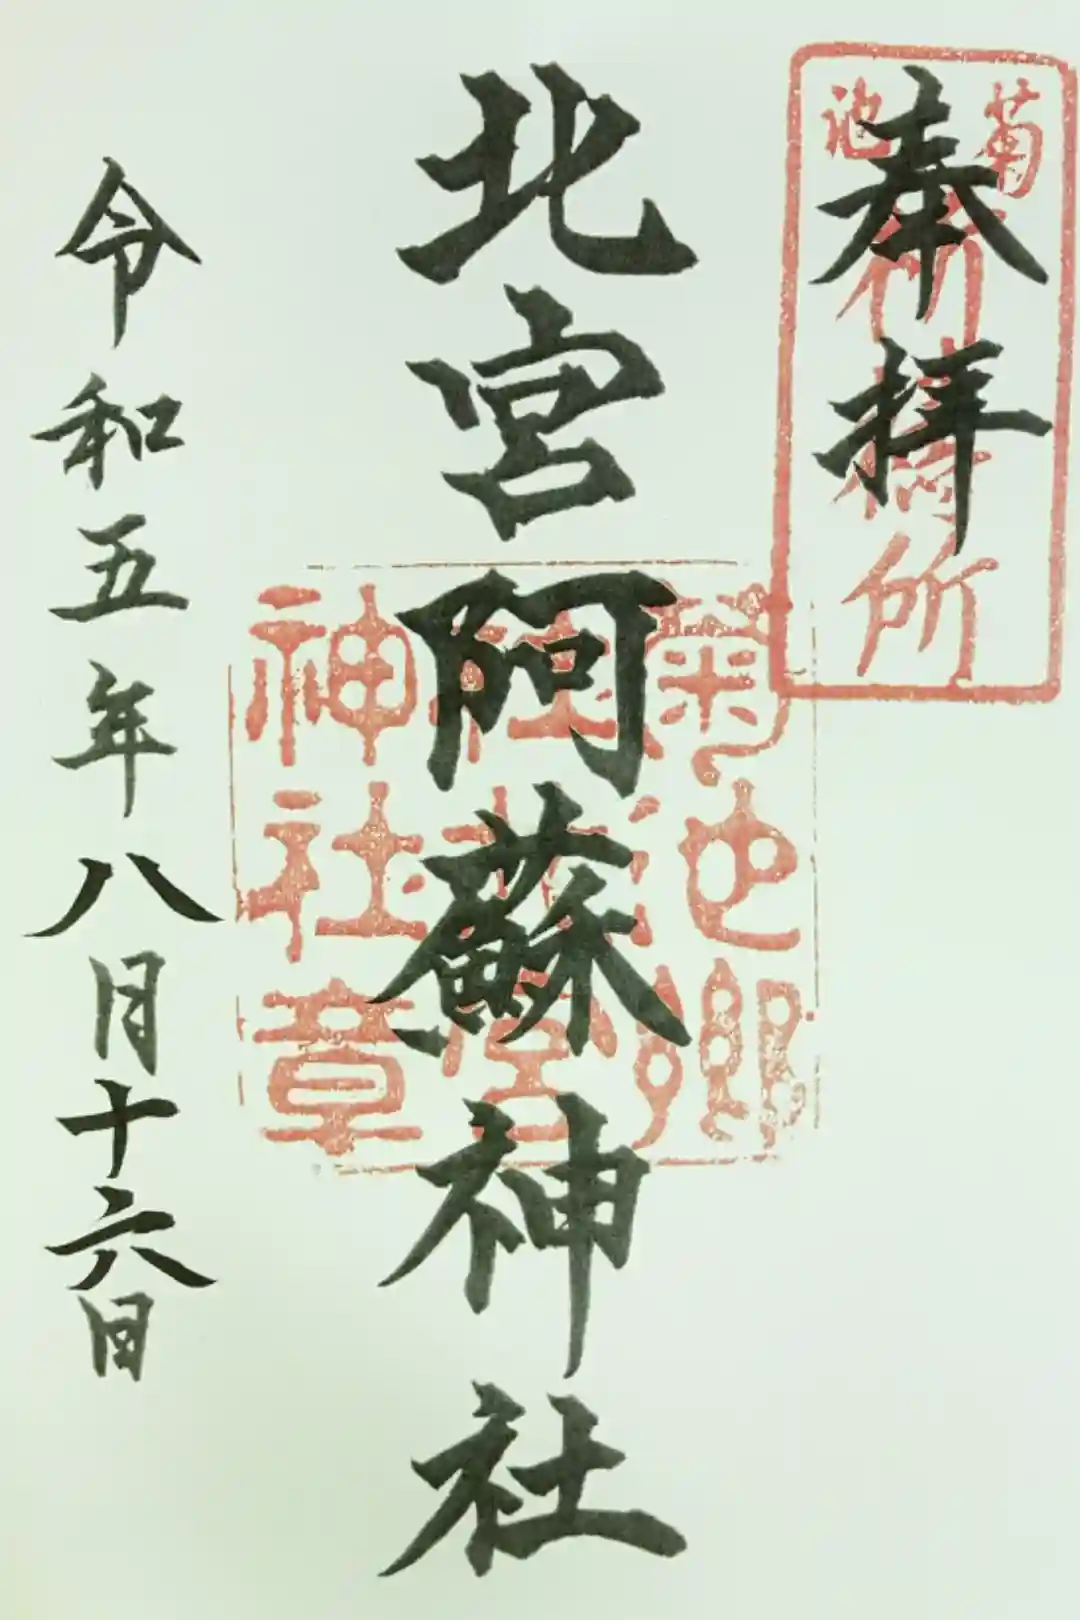 奉拝
菊池
所
北宮阿蘇神社
菊池郷
神社章
令和五年八月十六日